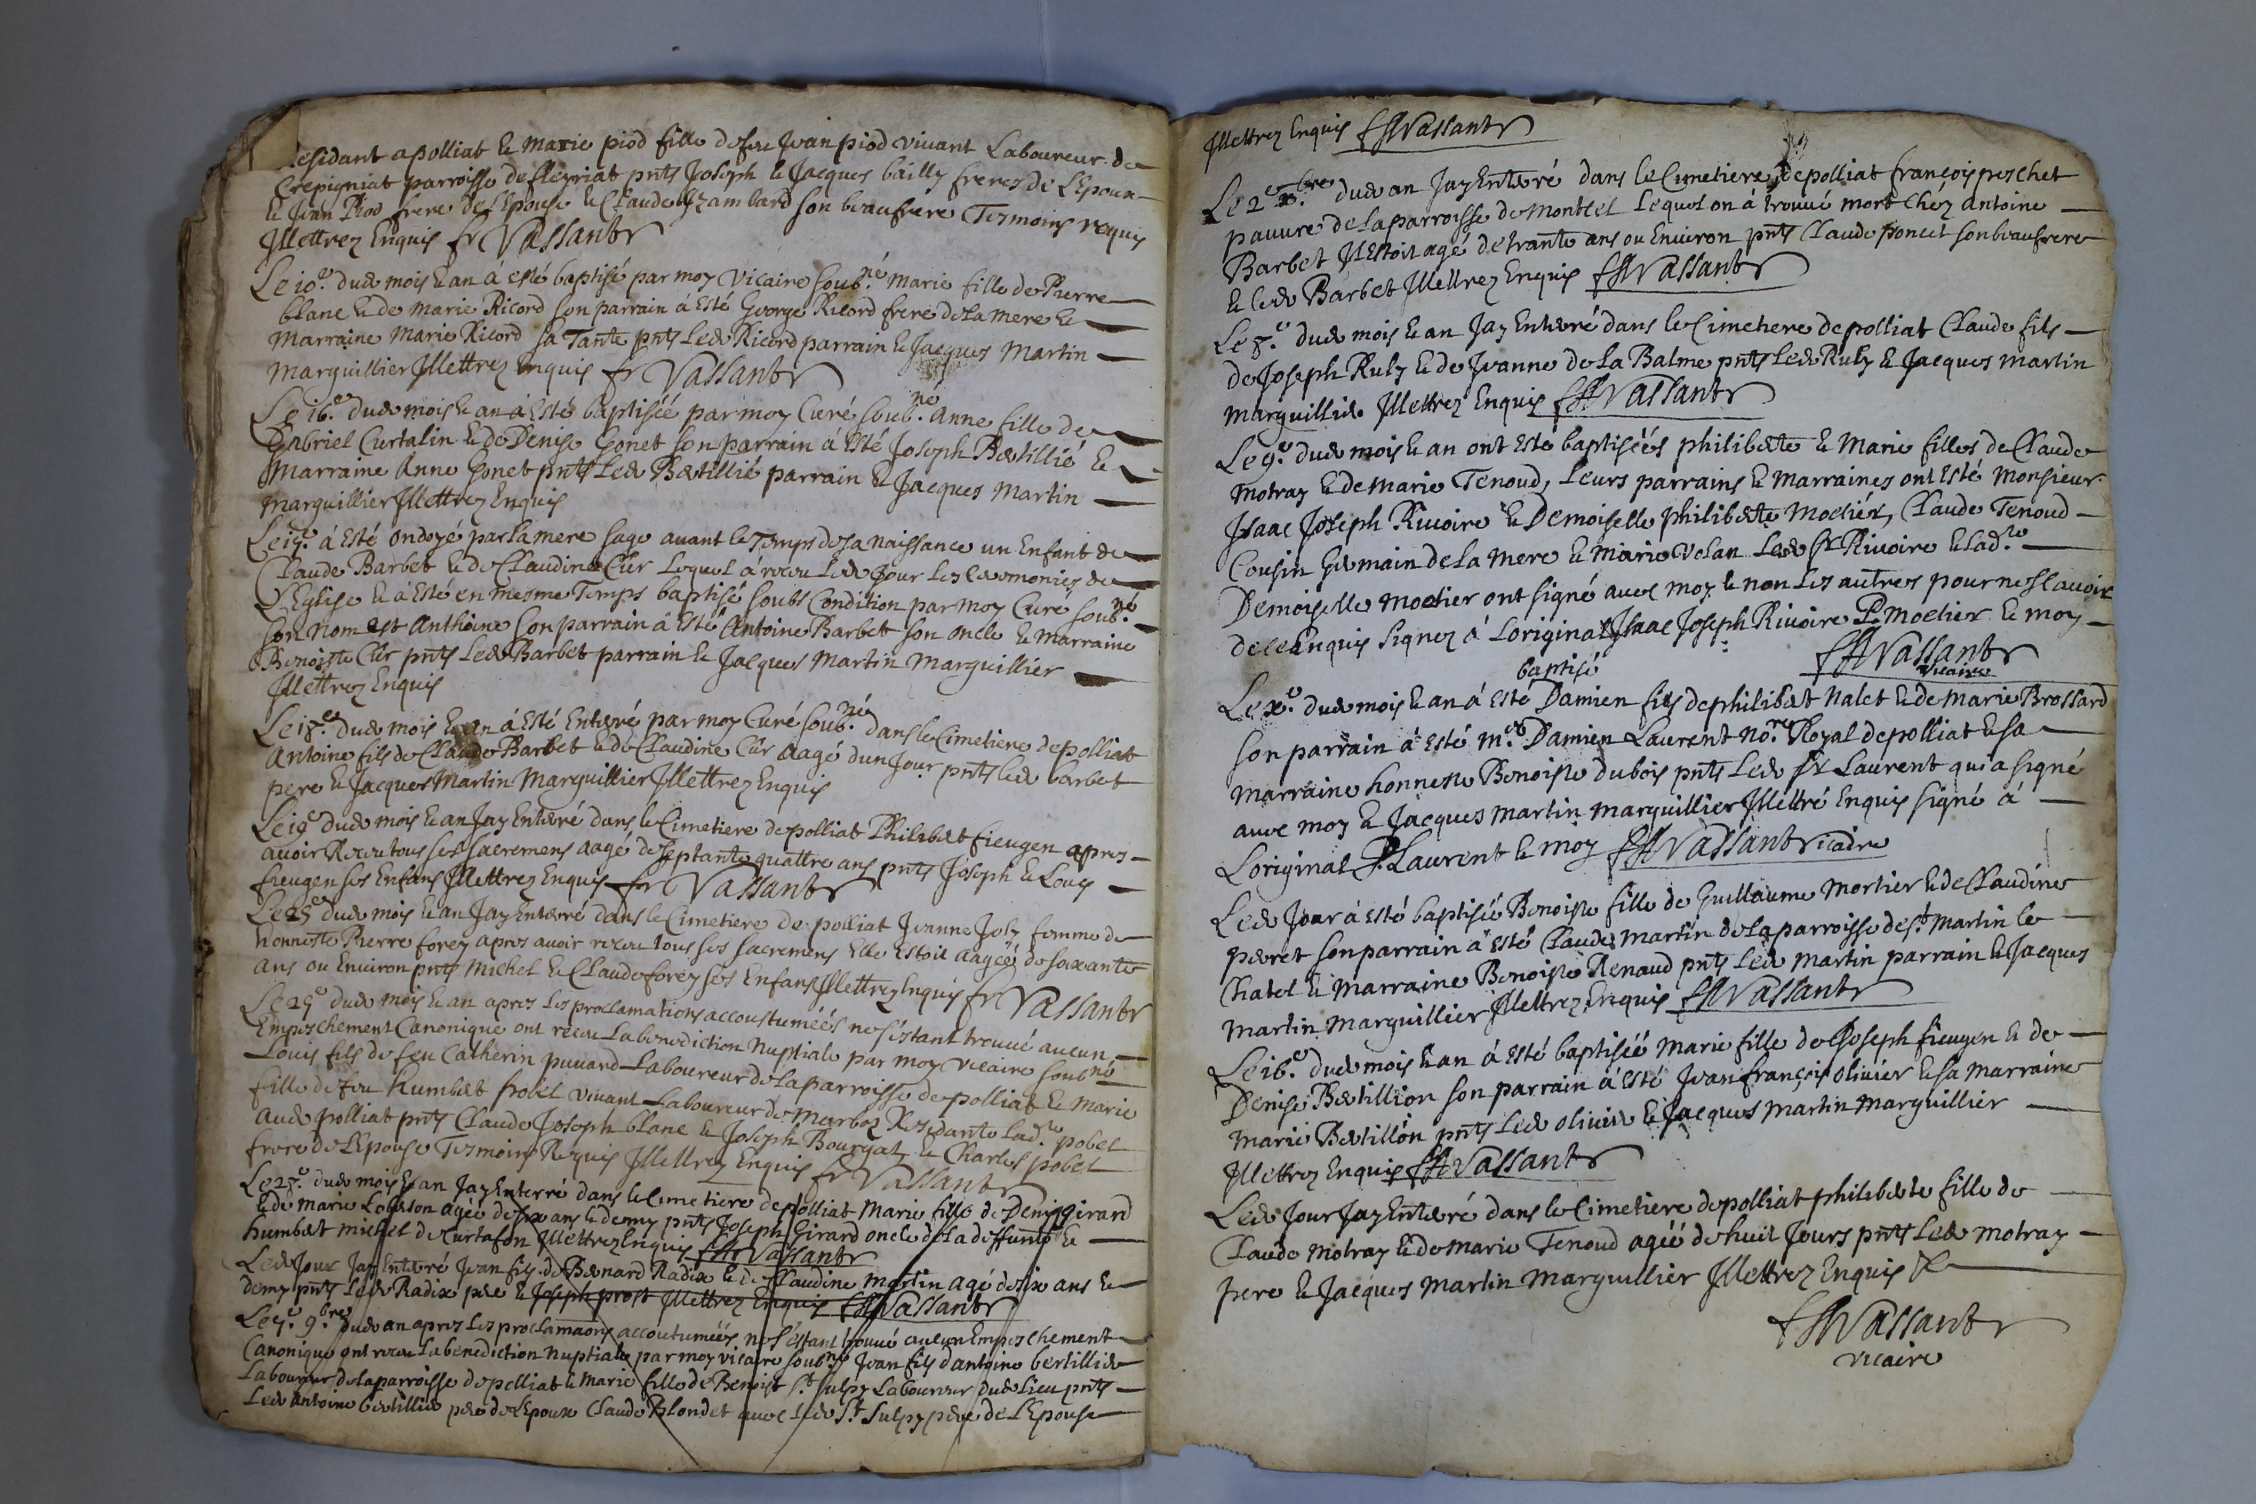 residant a polliat & Marie piod fille de feu Jean piod vivant Laboureur de
Crepigniat parroisse de fleyriat pnts Joseph & Jacques bailly freres de L'Epoux
& Jean Piod frere de L'Epouse & Claude Izambard son beaufrere Tesmoins requis
Illettrez Enquis fr Vassant
Le 10.e dud mois & an à esté baptisé par moy vicaire soub.né Marie fille de Pierre
blanc & de Marie Ricord son parrain à Esté George Ricord frere de La mere &
Marraine Marie Ricord sa Tante pnts Led Ricord parrain & Jacques Martin
Marguillier Illettrez Enquis fr Vassant
Le 16.e dud mois & an à Esté baptiséé par moy Curé soub.né Anne fille de
Gabriel Curtalin & de Denise Gonet son parrain à Esté Joseph Bertillié &
Marraine Anne Gonet pnts Led Bertillié parrain & Jacques Martin
Marguillier Illettrez Enquis
Le 17.e à Esté ondoyé par la mere sage avant le Temps de sa naissance un Enfant de
Claude Barbet & de Claudine Cür Lequel à receu Led Jour Les Ceremonies de
L'Eglise & à Esté en mesme Temps baptisé soubs Condition par moy Curé soub.né
son nom est Anthoine son parrain à Esté Antoine Barbet son oncle & Marraine
Benoiste Cür pnts Led Barbet parrain & Jacques Martin Marguillier
Illettrez Enquis
Le 18.e dud mois & an à Esté Enterré par moy Curé soub.né dans le Cimetiere de polliat
Antoine fils de Claude Barbet & de Claudine Cür aagé dun Jour pnts led barbet
pere & Jacques Martin Marguillier Illettrez Enquis
Le 19.e dud mois & an Jay Enterré dans le Cimetiere de polliat Philibert fieugen apres
avoir Receu tous ses sacremens aagé de septante quattre ans pnts Joseph & Louis
fieugen ses Enfans Illettrez Enquis fr Vassant
Le 25.e dud mois & an Jay Enterré dans le Cimetiere de polliat Jeanne Joly femme de
honneste Pierre forey apres avoir receu tous ses sacremens Elle Estoit aagéé de soixante
ans ou Environ pnts Michel & Claude forey ses Enfans Illettrez Enquis fr Vassant
Le 29.e dud mois & an apres Les proclamations accoustuméés ne s'estant trouvé aucun
Empeschement Canonique ont receu La benediction Nuptiale par moy vicaire soub.né
Louis fils de feu Catherin puvard Laboureur de La parroisse de polliat & Marie
fille de feu humbert pobel vivant Laboureur de Marboz Residante Lad.te pobel
aud polliat pnts Claude Joseph blanc & Joseph Bourgat & Charles pobel
frere de L'Epouse Tesmoins Requis Illettrez Enquis fr Vassant
Le 25.e dud mois & an Jay Enterré dans le Cimetiere de polliat Marie fille de Denis Girard
& de Marie agée de six ans & demy pnts Joseph Girard oncle de La deffunte &
humbert michel de Curtafon Illettrez Enquis Vassant
Led Jour Jay Enterré Jean fils de Bernard Radix & de Claudine Martin agé de six ans &
demy pnts Led Radix pere & Joseph prost Illettrez Enquis Vassant
Le 7.e 9.bre dud an apres Les proclamaons accoutuméés ne s'estant trouvé aucun Empeschement
Canonique ont receu La benediction Nuptiale par moy vicaire soub.né Jean fils d'antoine bertillier
Laboureur de la parroisse de polliat & Marie fille de Benoist St Sulpy Laboureur dud Lieu pnts
Led antoine bertillier pere de L'Epoux Claude Blondet avec led St Sulpy pere de L'Epouse
Illettrez Enquis Vassant
Le 2.e x.bre dud an Jay Enterré dans le Cimetiere de polliat françois peschet
pauvre de la parroisse de Montcel Lequel on à trouvé mort Chéz antoine
Barbet Il Estoit agé de trante ans ou Environ pnts Claude poncet son beaufrere
& led Barbet Illettrez Enquis Vassant
Le 8.e dud mois & an Jay Enterré dans le Cimetiere de polliat Claude fils
de Joseph Ruly & de Jeanne de La Balme pnts Led Ruly & Jacques Martin
Marguillier Illettrez Enquis Vassant
Le 9.e dud mois & an ont Esté baptiséés philiberte & Marie filles de Claude
Motray & de Marie Tenoud, Leurs parrains & Marraines ont Esté Monsieur
Isaac Joseph Rivoire & Demoiselle philiberte Moetier, Claude Tenoud
Cousin Germain de la mere & Marie Volan Led Sr Rivoire & Lad.te
Demoiselle Moetier ont signé avec moy & non Les autres pour ne sçavoir
de ce Enquis signez à Loriginal Isaac Joseph Rivoire P. Moetier & moy
Vassant
vicaire
baptisé
Le x.e dud mois & an à Esté Damien fils de philibert Nalet & de Marie Brossard
son parrain à Esté M.e Damien Laurent No.re Royal de polliat & sa
Marraine honneste Benoiste dubois pnts Led Sr Laurent qui a signé
avec moy & Jacques Martin Marguillier Illettré Enquis signé à
Loriginal D. Laurent & moy Vassant vicaire
Led Jour à Esté baptiséé Benoiste fille de Guillaume Mortier & de Claudine
perret son parrain à Esté Claude Martin de la parroisse de St Martin le
Chatel & Marraine Benoiste Renaud pnts Led Martin parrain & Jacques
Martin Marguillier Illettrez Enquis Vassant
Le 16.e dud mois & an à Esté baptiséé Marie fille de Joseph fieugen & de
Denise Bertillion son parrain à Esté Jean françois olivier & sa Marraine
Marie Bertillion pnts Led olivier & Jacques Martin Marguillier
Illettrez Enquis Vassant
Led Jour Jay Enterré dans le Cimetiere de polliat philiberte fille de
Claude Motray & de Marie Tenoud agéé de huit Jours pnts Led Motray
pere & Jacques Martin Marguillier Illettrez Enquis
Vassant
vicaire